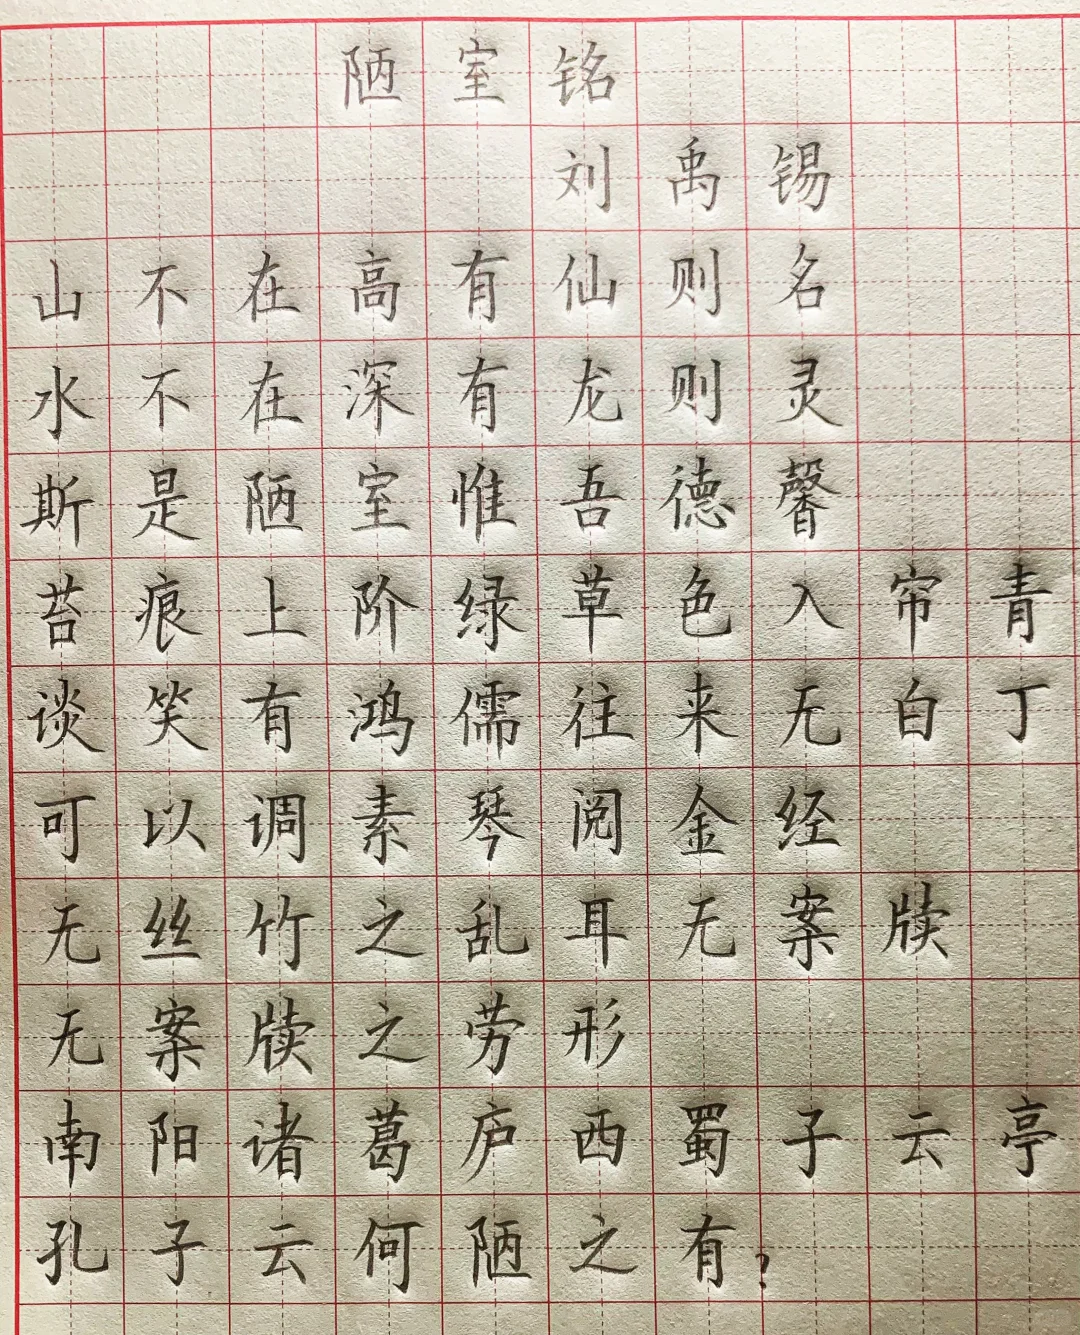 陋室铭
刘禹锡
山不在高有仙则名
水不在深有龙则灵
斯是陋室惟吾德馨
苔痕上阶绿草色入帘青
谈笑有鸿儒往来无白丁
可以调素琴阅金经
无丝竹之乱耳无案牍
无案牍之劳形
南阳诸葛庐西蜀子云亭
孔子云何陋之有?